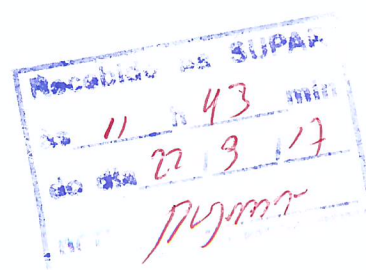 Recebido na SUPAR
às 11 h 43 min
do dia 22 / 9 / 17